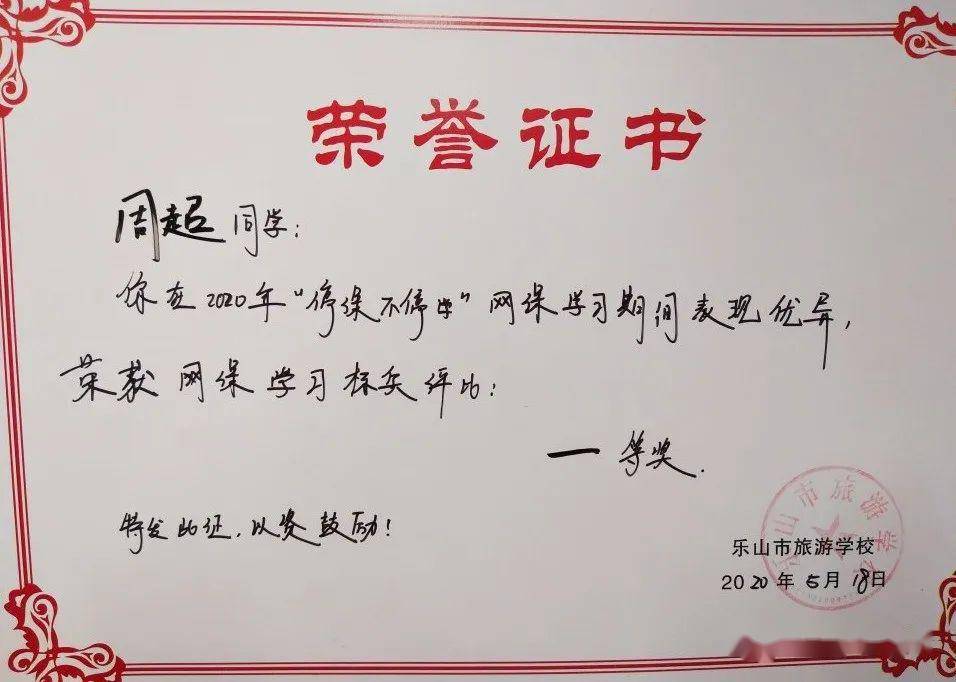 荣誉证书
周超同学:
你在2020年"停课不停学"网课学习期间表现优异,
荣获网课学习标兵评比:
一等奖.
特发此证,以资鼓励!
乐山市旅游学校
乐山市旅游学校
2020年5月18日